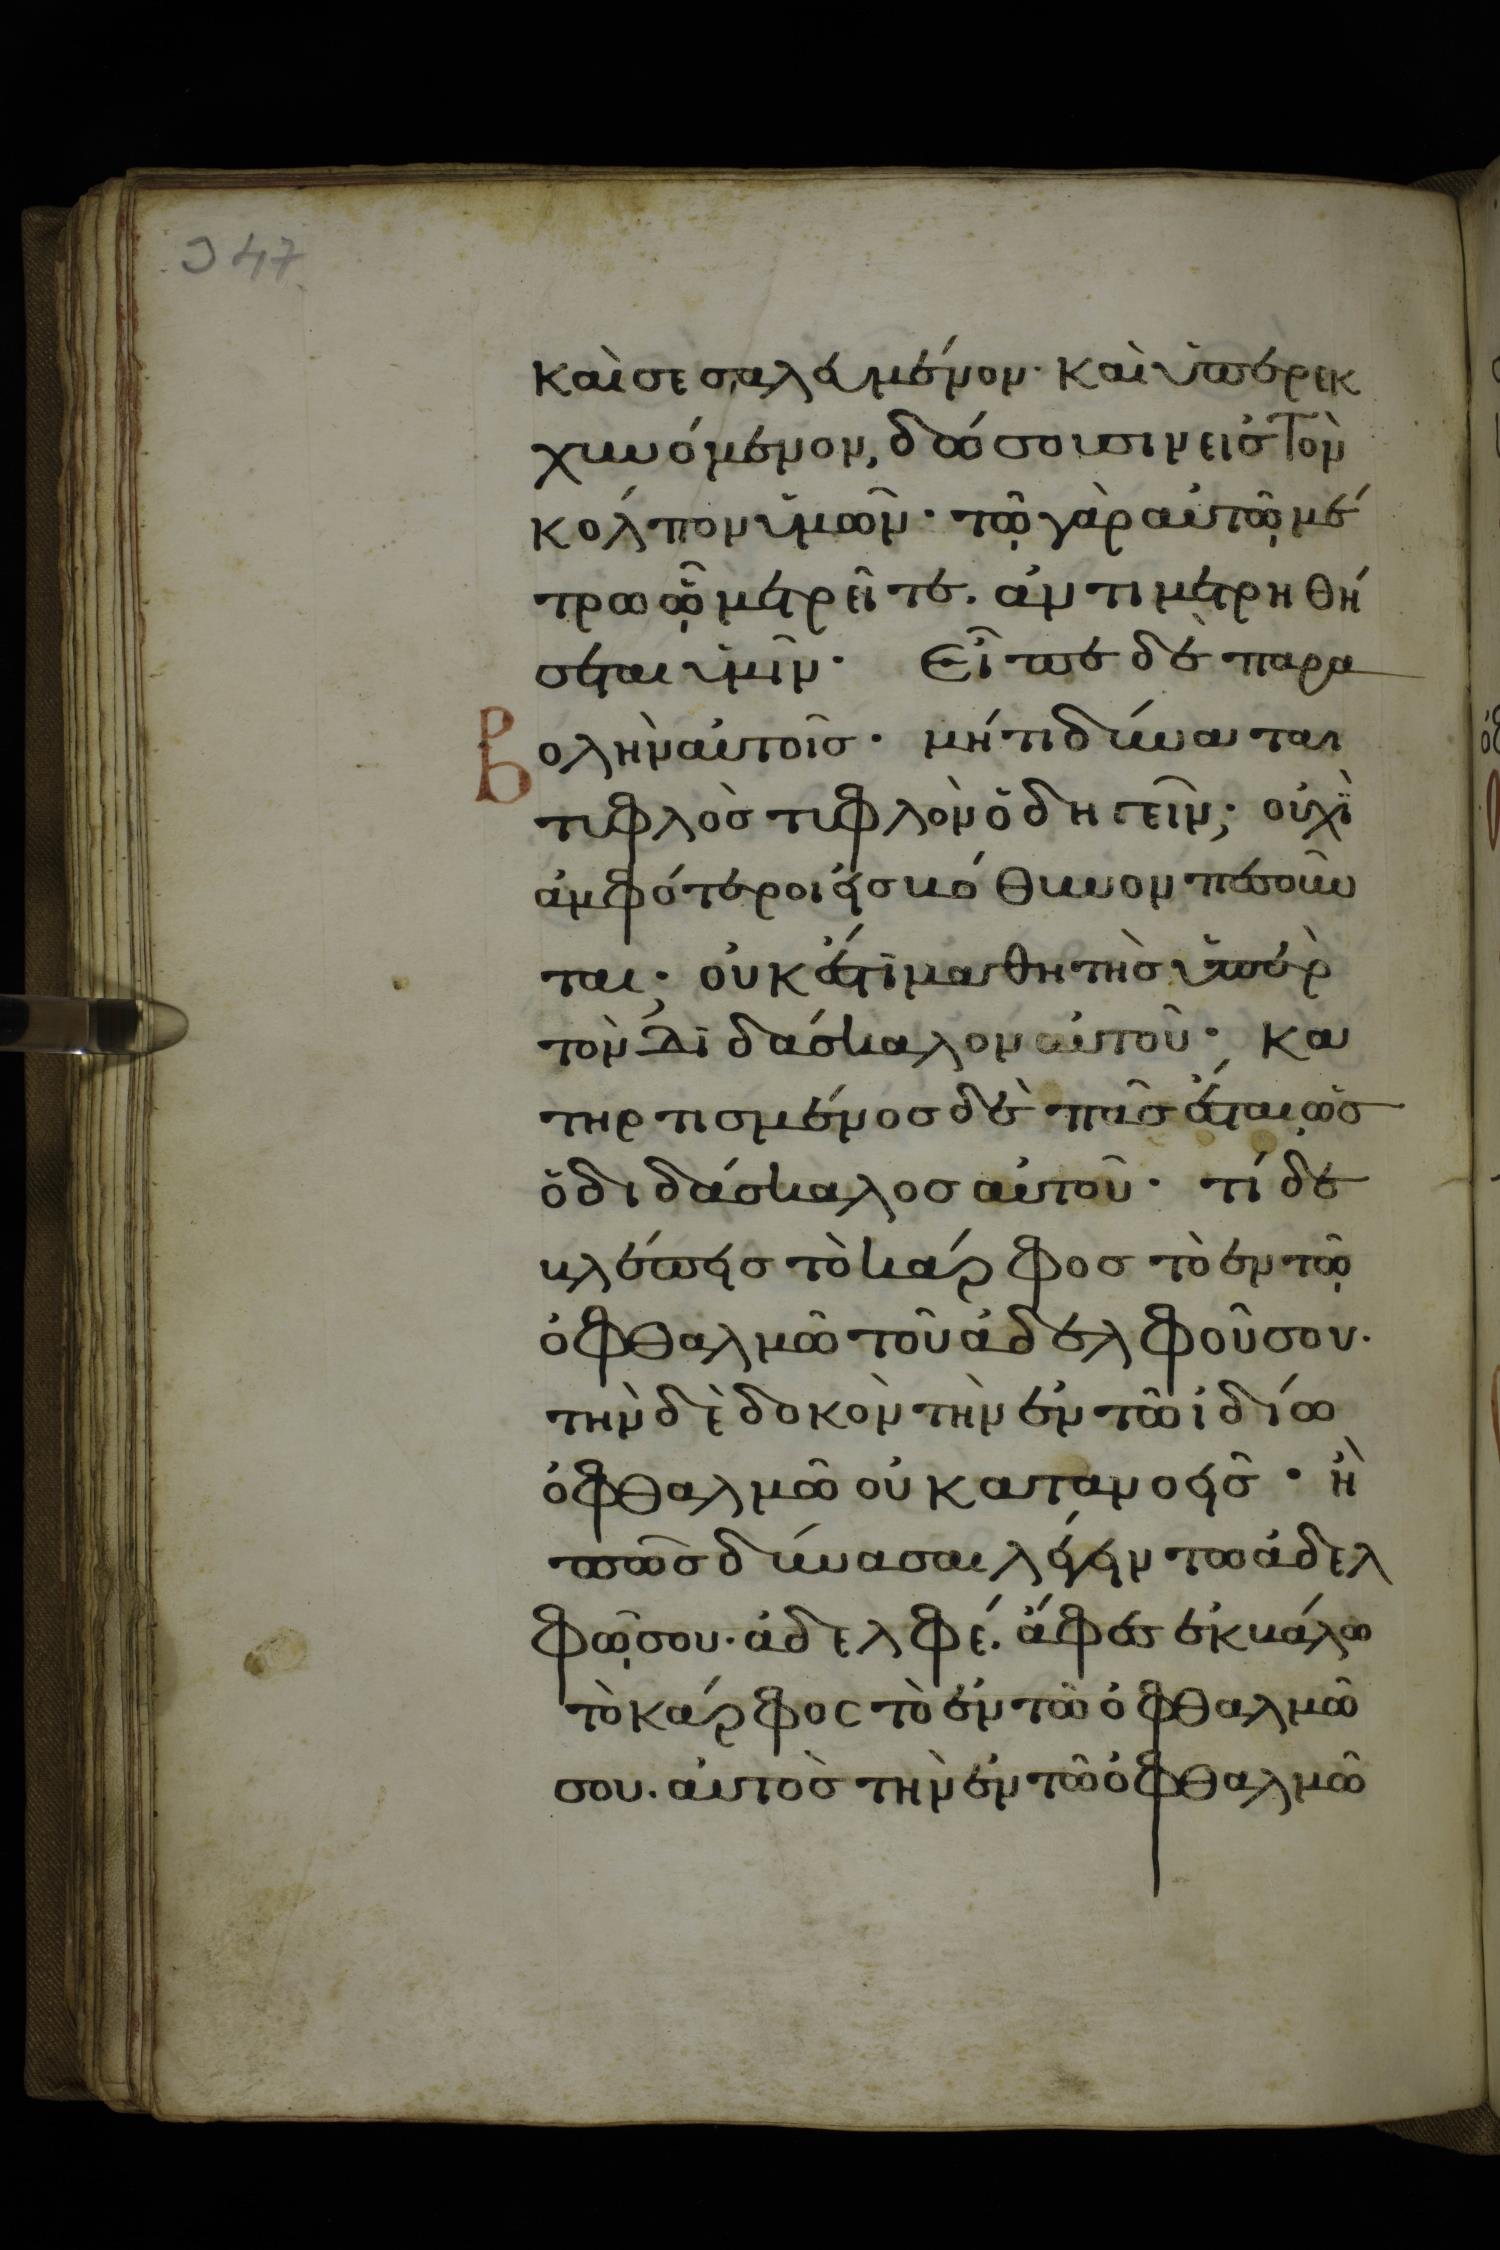 347
καὶ σεσαλευμένον· καὶ ὑπερεκ
χυνόμενον, δώσουσιν εἰς τὸν
κόλπον ὑμῶν· τῷ γὰρ αὐτῷ μέ
τρω ᾧ μετρεῖτε. ἀντιμετρηθή
σεται ὑμῖν· Εἶπε δὲ παρα
βολὴν αὐτοῖς· μήτι δύναται
τυφλὸς τυφλὸν ὁδηγεῖν; οὐχὶ
ἀμφότεροι εἰς βόθυνον πεσοῦν
ται; οὐκ ἔστι μαθητὴς ὑπὲρ
τὸν διδάσκαλον αὐτοῦ· κα
τηρτισμένος δὲ πᾶς ἔσται ὡς
ὁ διδάσκαλος αὐτοῦ· τί δὲ
βλέπεις τὸ κάρφος τὸ ἐν τῷ
ὀφθαλμῶ τοῦ ἀδελφοῦ σου.
τὴν δὲ δοκὸν τὴν ἐν τῶ ἰδίω
ὀφθαλμῶ οὐ κατανοεῖς· ἢ
πῶς δύνασαι λέγειν τω ἀδελ
φῷ σου· ἀδελφέ. ἄφες ἐκβάλω
τὸ κάρφος τὸ ἐν τῶ ὀφθαλμῶ
σου. αὐτὸς τὴν ἐν τῶ ὀφθαλμῶ